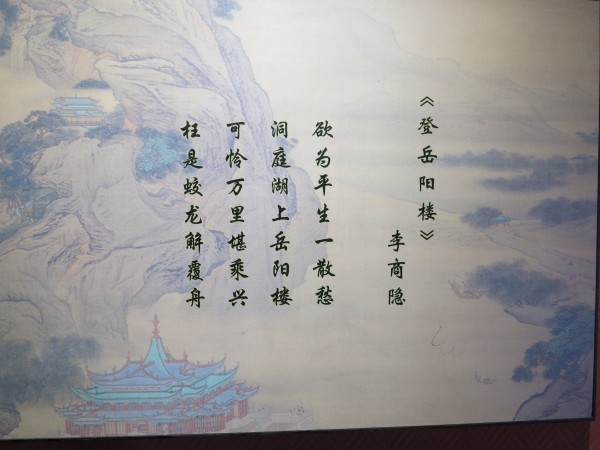 《登岳阳楼》
李商隐
欲为平生一散愁
洞庭湖上岳阳楼
可怜万里堪乘兴
枉是蛟龙解覆舟